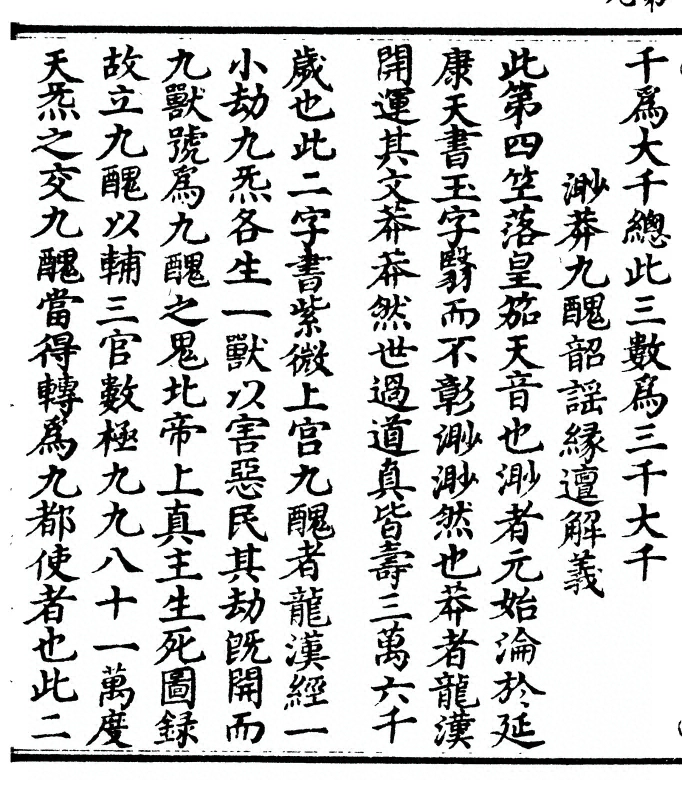 千爲大千總此三數爲三千大千
渺莽九醜韶謡緣邅解義
此第四竺落皇笳天音也渺者元始淪於延
康天書玉字翳而不彰渺渺然也莽者龍漢
開運其文莽莽然世過道真皆壽三萬六千
歲也此二字書紫微上宮九醜者龍漢經一
小劫九炁各生一獸以害惡民其劫旣開而
九獸號爲九醜之鬼北帝上真主生死圖録
故立九醜以輔三官數極九九八十一萬度
天炁之交九醜當得轉爲九都使者也此二